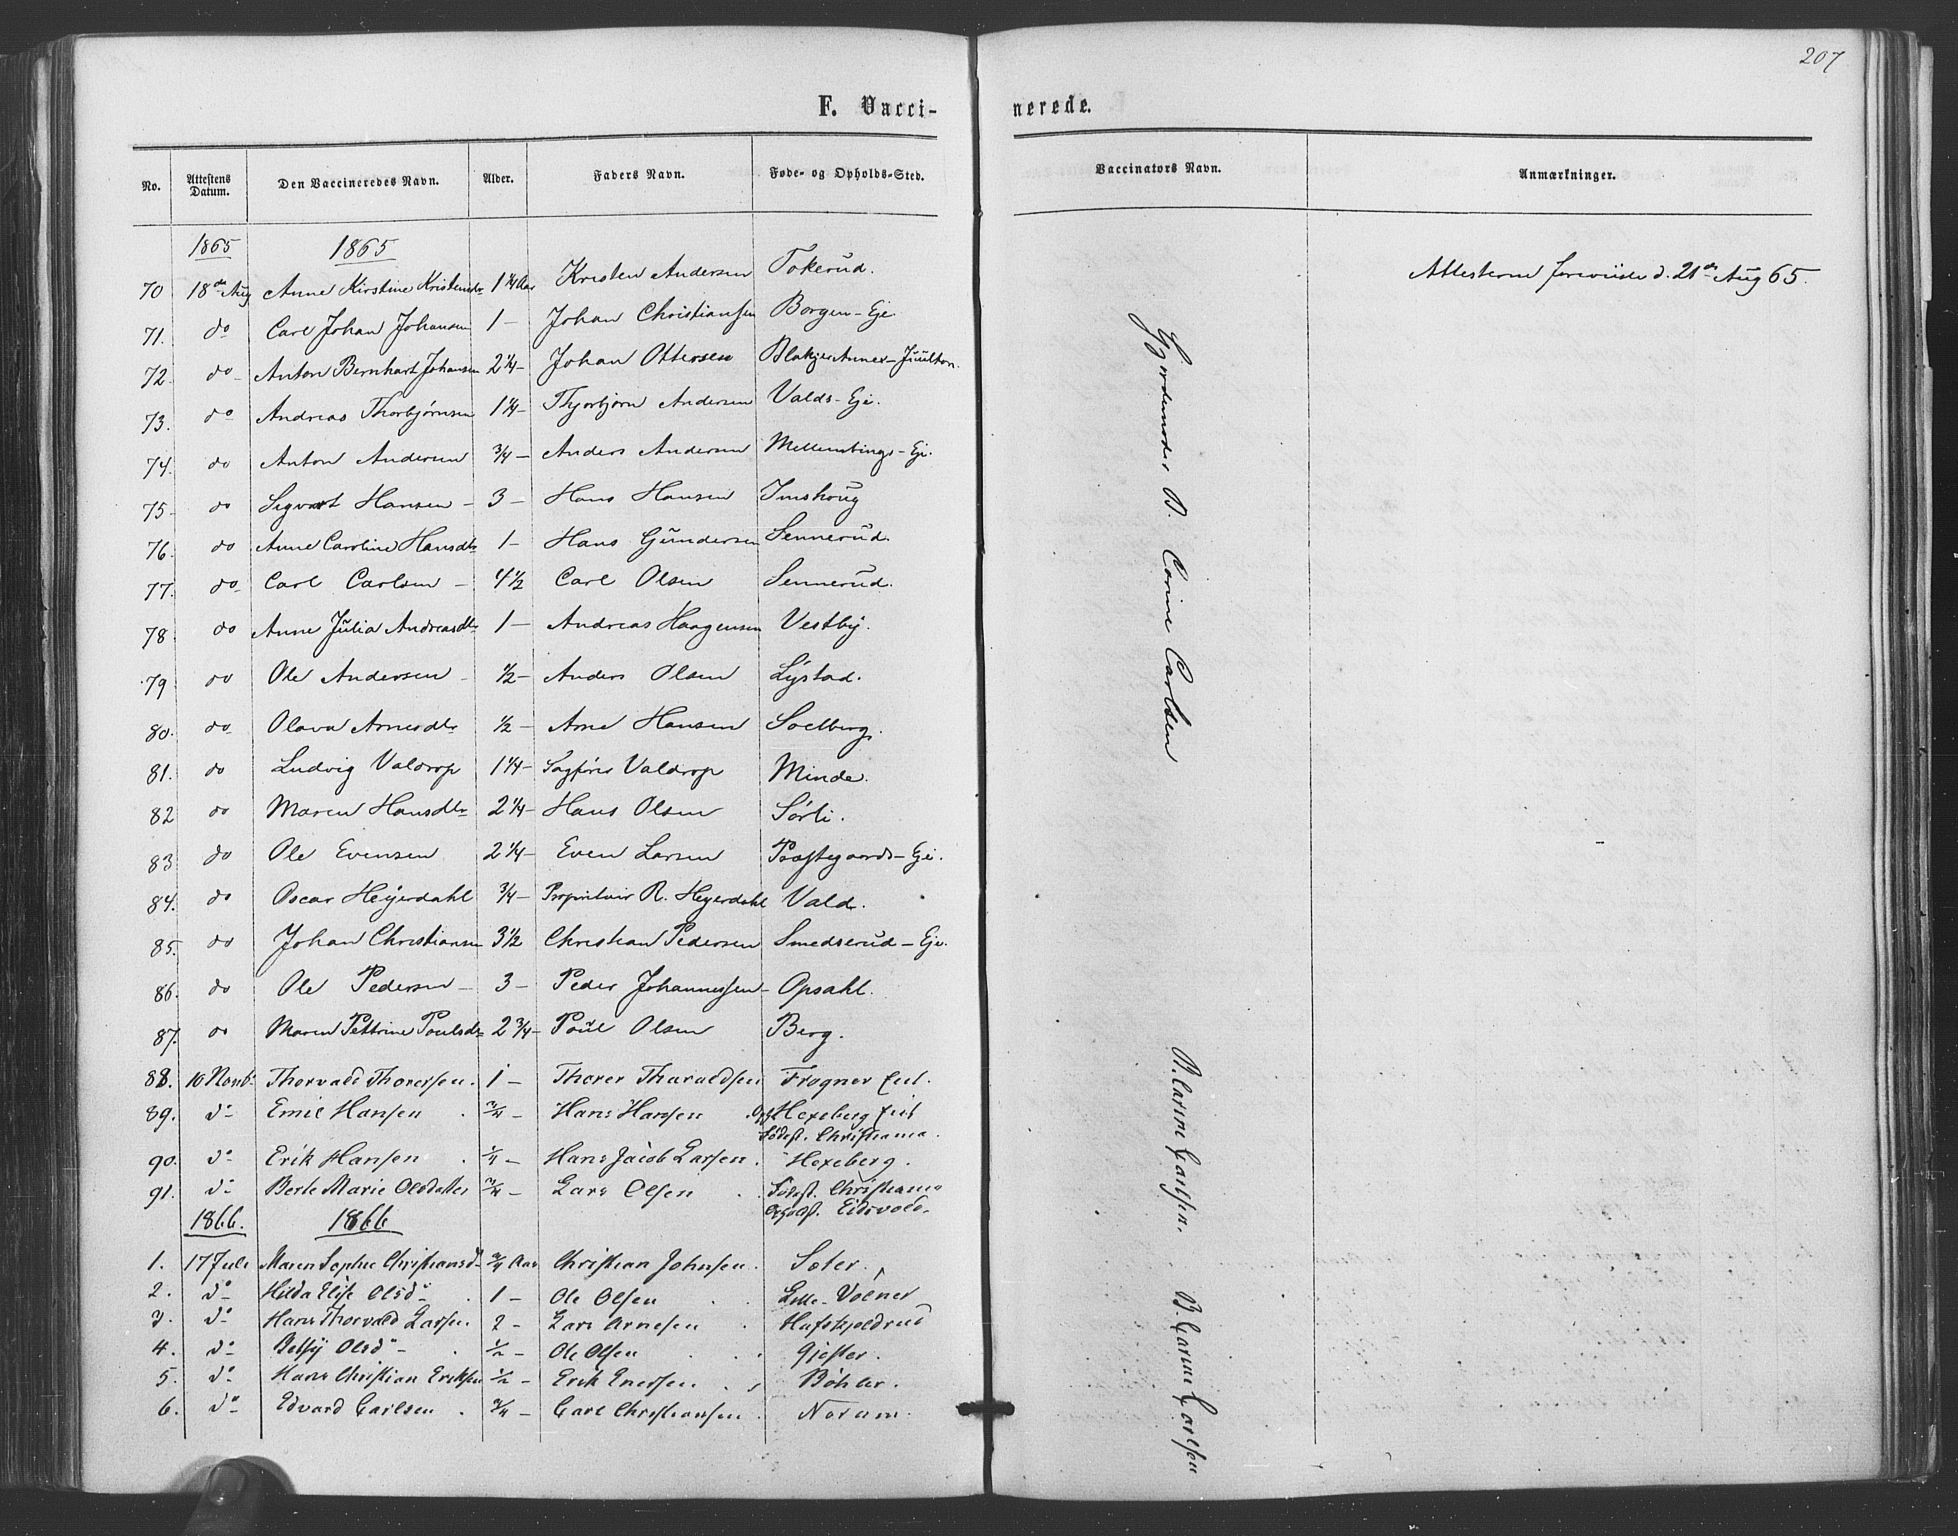 207
F. Vacci-
nerede.
No. Attestens Datum. Den Vaccineredes Navn. Alder. Faders Navn. Føde- og Opholds-Sted. Vaccinators Navn. Anmærkninger.
1865 1865
70 18de Aug Anne Kirstine Kristensdr 1 1/4 Aar Kristen Andersen Tokerud. Attesterne foreviiste d. 21de Aug 65.
71. do Carl Johan Johansen 1 – Johan Christiansen Borgen-Eje.
72. do – Anton Bernhart Johansen 2 1/4 – Johan Ottersen Blakjer Annex –
73. do Andreas Thorbjørnsen 1 1/4 – Thorbjørn Andersen Valds-Eje.
74. do Anton Andersen 3/4 – Anders Andersen Mellembings-Ej.
75 – do Sigvart Hansen – 3 – Hans Hansen Imshoug
76. do Anne Caroline Hansdr 1 – Hans Gundersen Sennerud.
77. do – Carl Carlsen – 4 1/2 Carl Olsen Sennerud.
78 do Anne Julia Andreasdr 1 – Andreas Haagensen Vestby.
79 do Ole Andersen – 1/2 – Anders Olsen Lystad.
80. do Olava Arnesdr 1/2 – Arne Hansen Soelberg.
81. do Ludvig Valdrop 1 1/4 – Sagfører Valdrop Minde.
82 do Maren Hansdr 2 1/4 – Hans Olsen Sørli.
83 do Ole Evensen 2 1/4 – Even Larsen Præstgaards-Eje.
84. do Oscar Heyerdahl 3/4 – Proprietair R. Heyerdahl Vald.
85. do Johan Christiansen 3 1/2 Christian Pedersen Smedserud – Eje.
86. do Ole Pedersen – 3 – Peder Johannessen – Opsahl.
87. do Maren Pettrine Poulsdr 2 3/4 – Poul Olsen Berg.
Gjordemoder B. Corine Carlsen
88. 10 Novb. Thorvald Thoresen. 1 – Thorer Tharaldsen Frogner Eie.
89. do Emil Hansen . 3/4 – Hans Hansen . Oph Hexeberg Eie
Fødest. Christiania.
90. do Erik Hansen . 1/4 – Hans Jacob Larsen . Hexeberg.
91. do Berte Marie Olsdatter 3/4 – Lars Olsen . . Fødest. Christiania
Opholdst. Eidsvold.
B. Carine Carlsen.
1866. 1866
1. 17 Juli Maren Sophie Christiansd. 3/4 Aar Christian Johnsen. Sæter.
2. do Hilda Elise Olsd. . 1 – Ole Olsen . . Lille-Vølner
3. do Hans Thorvald Larsen 2 – Lars Arnesen . Hafskjoldrud
4. do Betsy Olsd. – . 1/2 – Ole Olsen . . . Gjester.
5. do Hans Christian Eriksen 1/2 – Erik Enersen . . Bøhler.
6. do Edvard Carlsen . 3/4 – Carl Christiansen . Noram.
B. Carine Carlsen